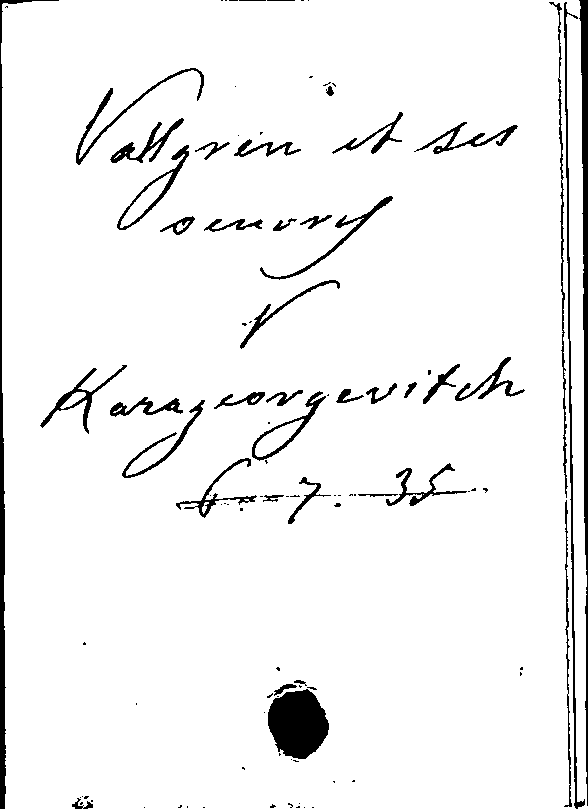 Vallgren et ses
oeuvres
V
Karageorgevitch
6. 7. 35.